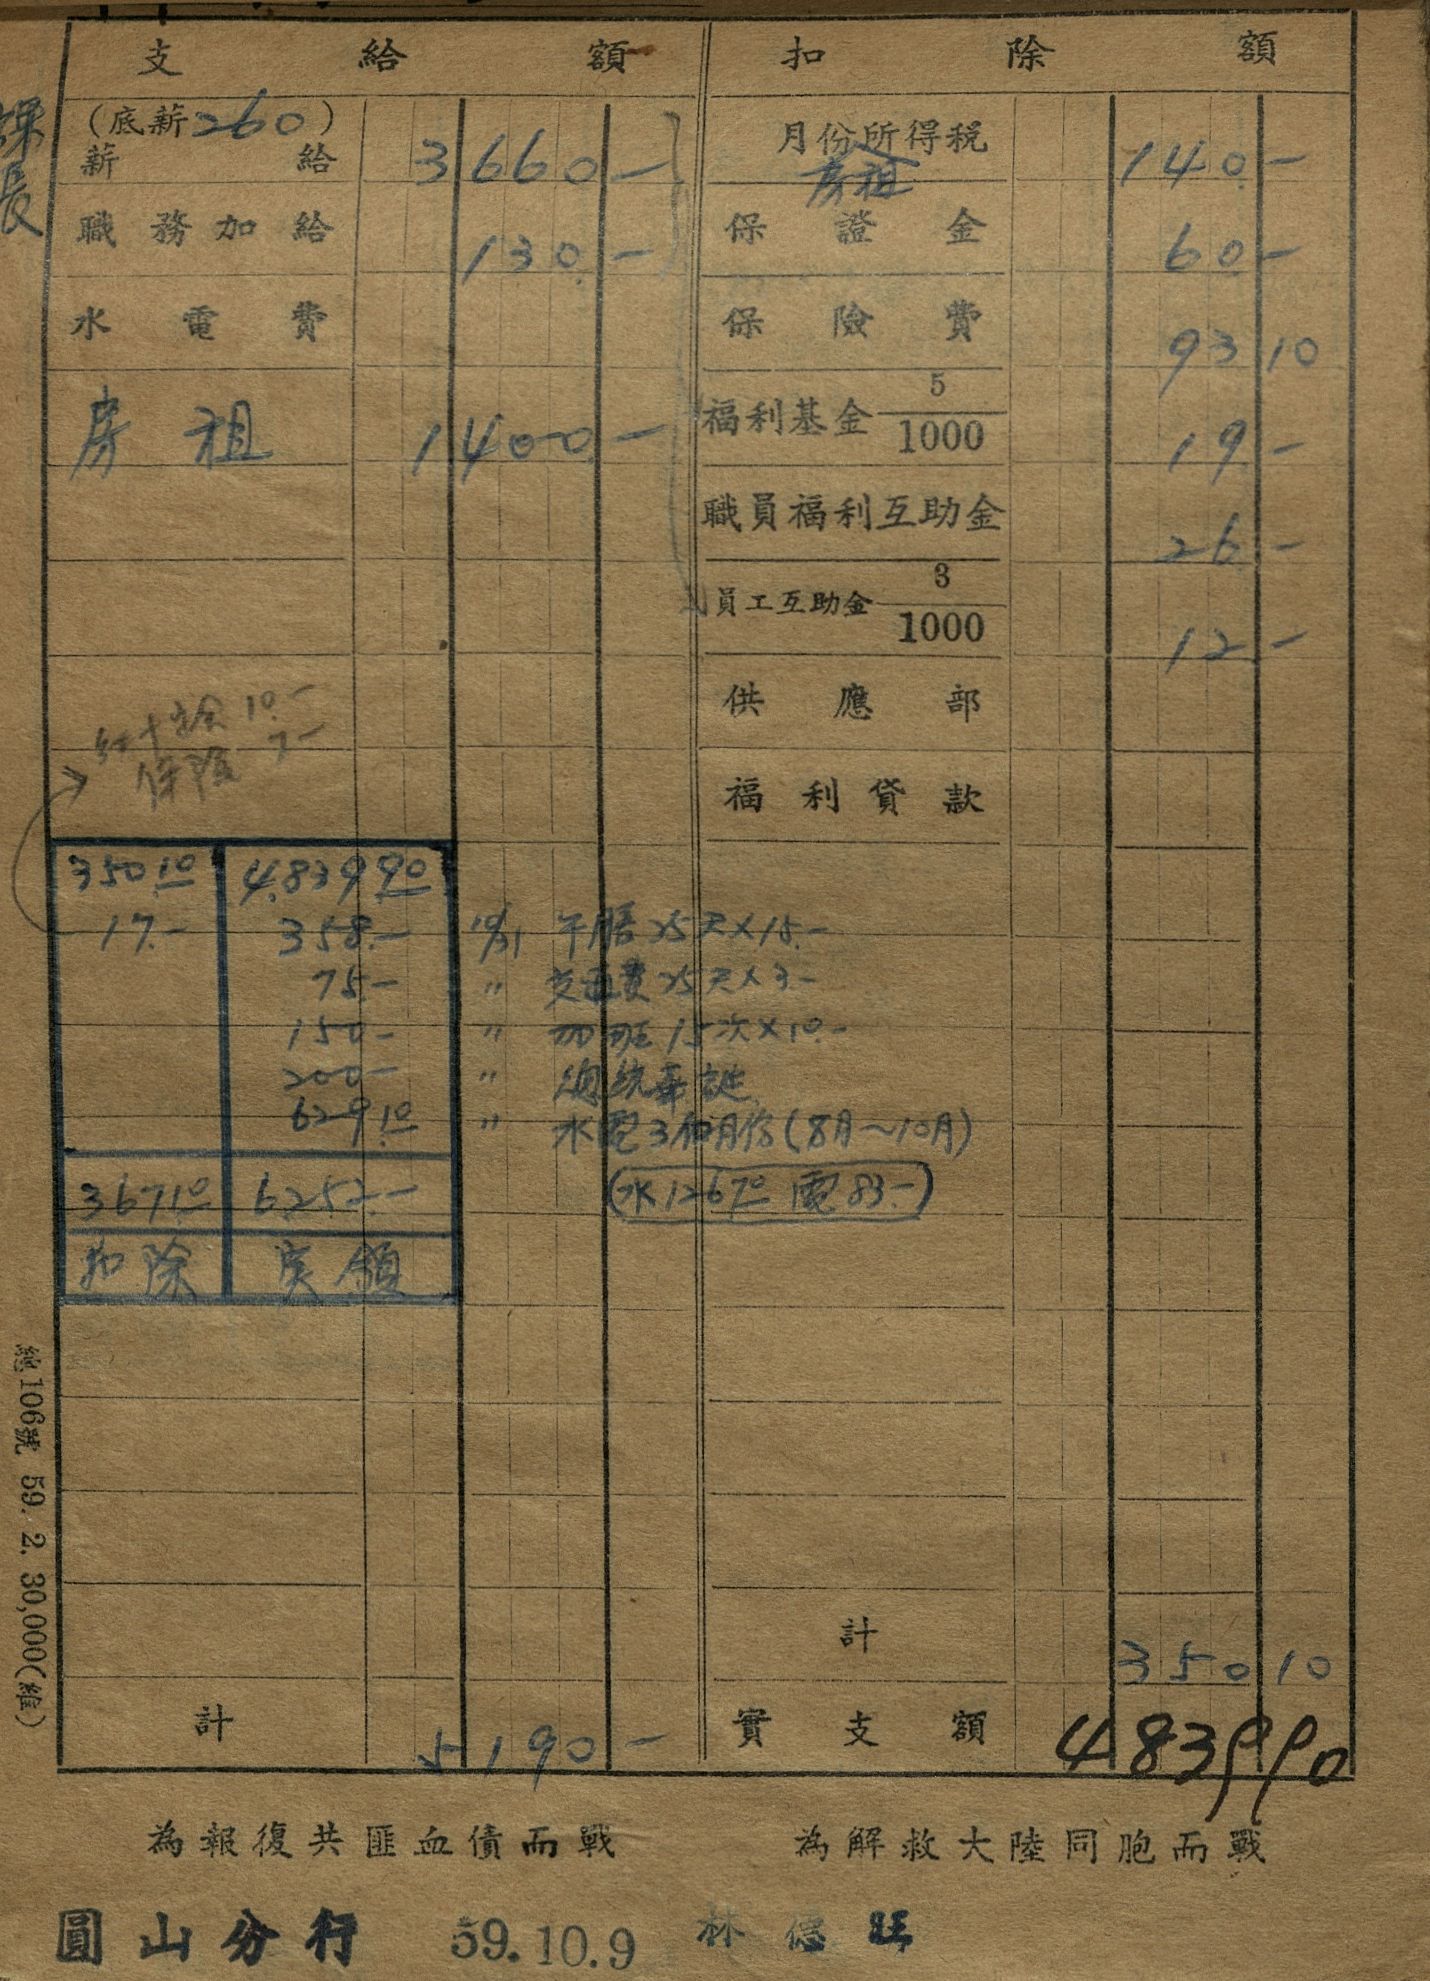 支給額
扣除額
課長
(底薪260)
薪給 3660-
職務加給 130.-
水電費
房租 1400-
紅十字会 10.-
保險 7-
月份所得稅 140.-
房租
保證金 60-
保險費 93 10
福利基金 5/1000 19.-
職員福利互助金 26.-
員工互助金 3/1000 12-
供應部
福利貸款
350.10 4.839.90
17.- 358.- 10/31 午膳25天×15.-
75.- 〃 交通費25天×3.-
150- 〃 加班15次×10.-
200- 〃 總統華誕
629.10 〃 水電3個月份(8月~10月)
367.10 6.252.- (水126.70 電83.-)
扣除 実領
計 350 10
計 5190-
實支額 4839 90
總106號 59. 2. 30,000(維)
為報復共匪血債而戰
為解救大陸同胞而戰
圓山分行 59.10.9 林德旺